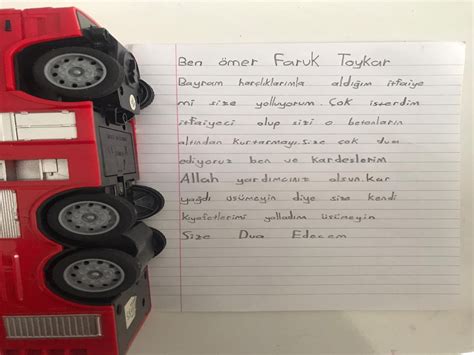 Ben ömer Faruk Toykar
Bayram harçlıklarımla aldığım itfaiye
mi size yolluyorum. Çok isterdim
itfaiyeci olup sizi o betonların
altından kurtarmayı. Size çok dua
ediyoruz ben ve kardeşlerim
Allah yardımcınız olsun. kar
yağdı üsümeyin diye size kendi
kıyafetlerimi yolladım üsümeyin
Size Dua Edecem